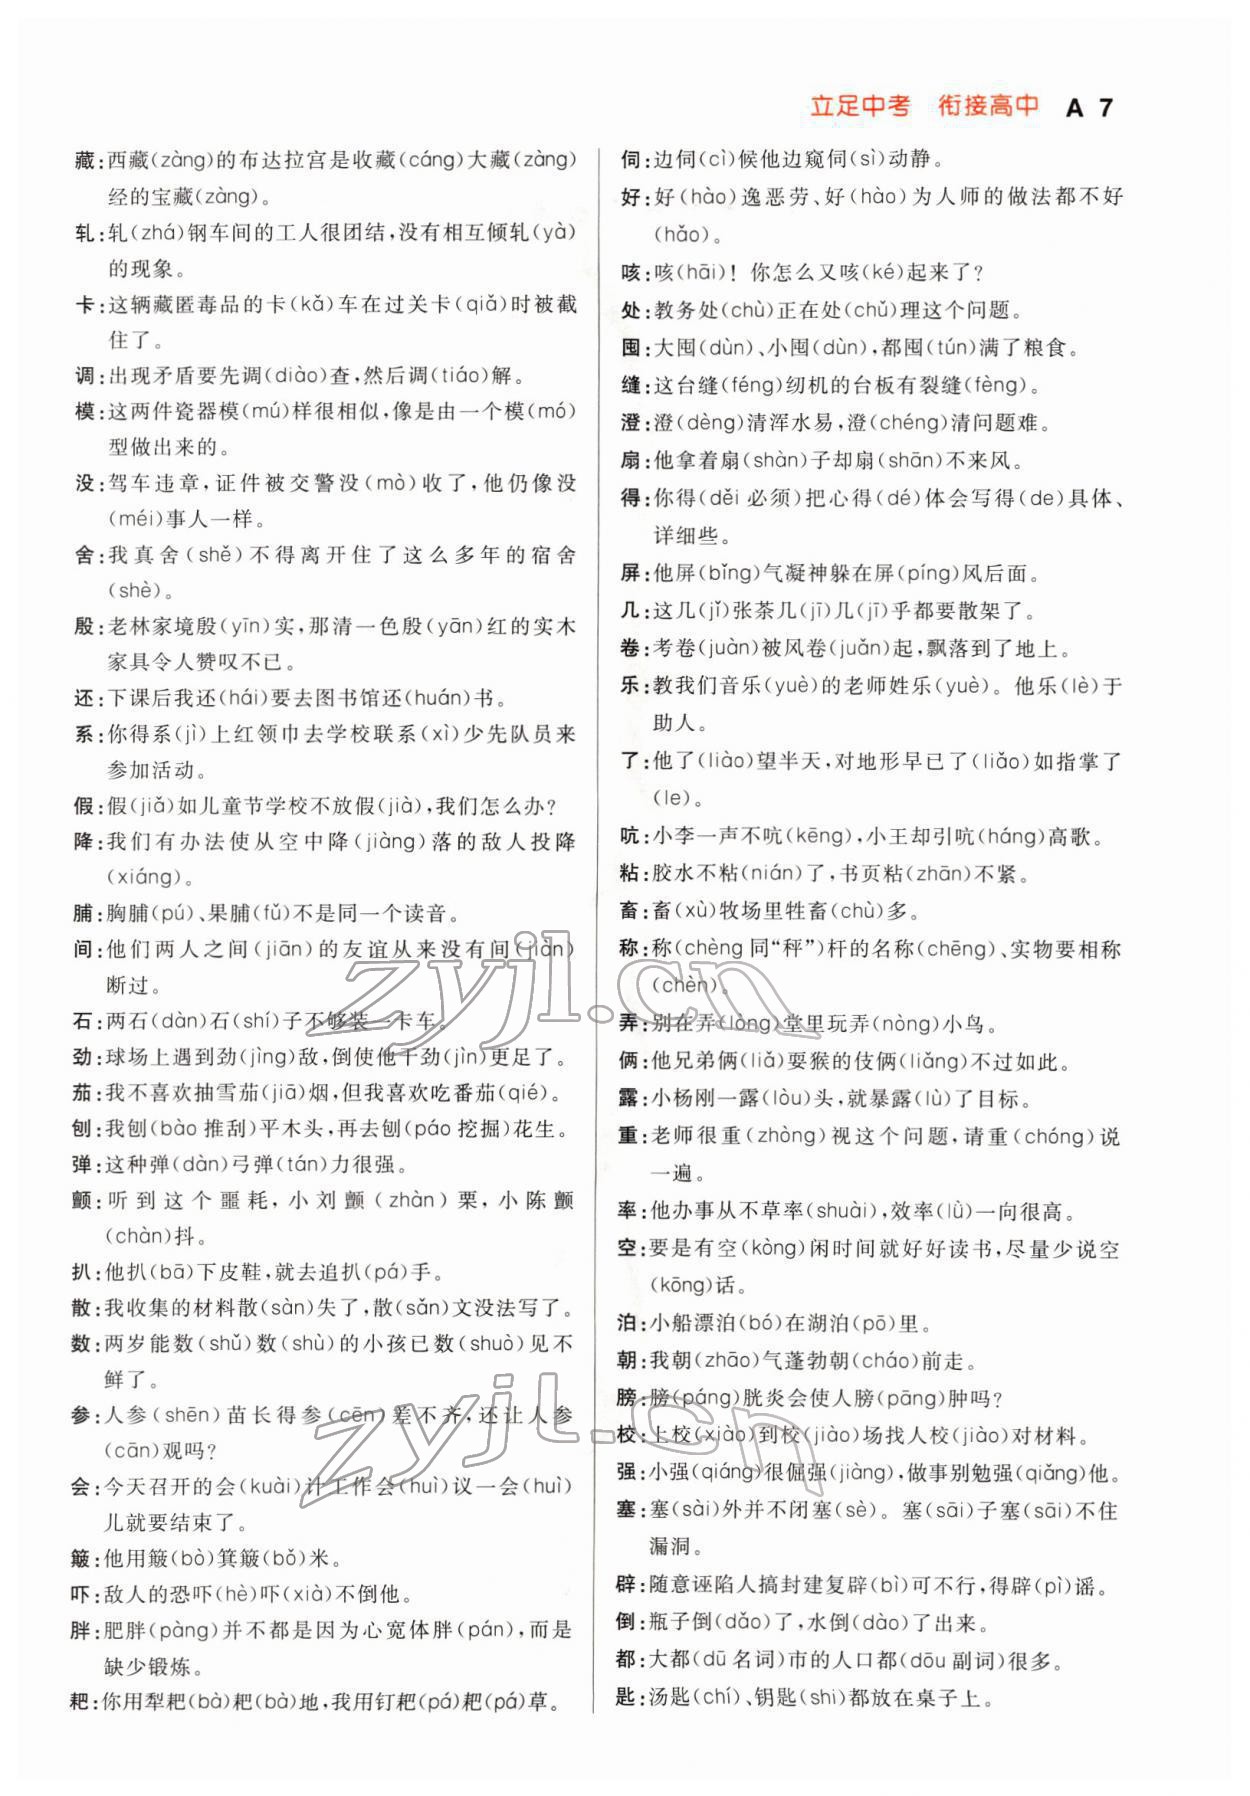 立足中考　衔接高中　A 7
藏:西藏(zàng)的布达拉宫是收藏(cáng)大藏(zàng)
经的宝藏(zàng)。
轧:轧(zhá)钢车间的工人很团结,没有相互倾轧(yà)
的现象。
卡:这辆藏匿毒品的卡(kǎ)车在过关卡(qiǎ)时被截
住了。
调:出现矛盾要先调(diào)查,然后调(tiáo)解。
模:这两件瓷器模(mú)样很相似,像是由一个模(mó)
型做出来的。
没:驾车违章,证件被交警没(mò)收了,他仍像没
(méi)事人一样。
舍:我真舍(shě)不得离开住了这么多年的宿舍
(shè)。
殷:老林家境殷(yīn)实,那清一色殷(yān)红的实木
家具令人赞叹不已。
还:下课后我还(hái)要去图书馆还(huán)书。
系:你得系(jì)上红领巾去学校联系(xì)少先队员来
参加活动。
假:假(jiǎ)如儿童节学校不放假(jià),我们怎么办?
降:我们有办法使从空中降(jiàng)落的敌人投降
(xiáng)。
脯:胸脯(pú)、果脯(fǔ)不是同一个读音。
间:他们两人之间(jiān)的友谊从来没有间(jiàn)
断过。
石:两石(dàn)石(shí)子不够装一卡车。
劲:球场上遇到劲(jìng)敌,倒使他干劲(jìn)更足了。
茄:我不喜欢抽雪茄(jiā)烟,但我喜欢吃番茄(qié)。
刨:我刨(bào 推刮)平木头,再去刨(páo 挖掘)花生。
弹:这种弹(dàn)弓弹(tán)力很强。
颤:听到这个噩耗,小刘颤(zhàn)栗,小陈颤
(chàn)抖。
扒:他扒(bā)下皮鞋,就去追扒(pá)手。
散:我收集的材料散(sàn)失了,散(sǎn)文没法写了。
数:两岁能数(shǔ)数(shù)的小孩已数(shuò)见不
鲜了。
参:人参(shēn)苗长得参(cēn)差不齐,还让人参
(cān)观吗?
会:今天召开的会(kuài)计工作会(huì)议一会(huì)
儿就要结束了。
簸:他用簸(bò)箕簸(bǒ)米。
吓:敌人的恐吓(hè)吓(xià)不倒他。
胖:肥胖(pàng)并不都是因为心宽体胖(pán),而是
缺少锻炼。
耙:你用犁耙(bà)耙(bà)地,我用钉耙(pá)耙(pá)草。
伺:边伺(cì)候他边窥伺(sì)动静。
好:好(hào)逸恶劳、好(hào)为人师的做法都不好
(hǎo)。
咳:咳(hāi)! 你怎么又咳(ké)起来了?
处:教务处(chù)正在处(chǔ)理这个问题。
囤:大囤(dùn)、小囤(dùn),都囤(tún)满了粮食。
缝:这台缝(féng)纫机的台板有裂缝(fèng)。
澄:澄(dèng)清浑水易,澄(chéng)清问题难。
扇:他拿着扇(shàn)子却扇(shān)不来风。
得:你得(děi 必须)把心得(dé)体会写得(de)具体、
详细些。
屏:他屏(bǐng)气凝神躲在屏(píng)风后面。
几:这几(jǐ)张茶几(jī)几(jī)乎都要散架了。
卷:考卷(juàn)被风卷(juǎn)起,飘落到了地上。
乐:教我们音乐(yuè)的老师姓乐(yuè)。他乐(lè)于
助人。
了:他了(liào)望半天,对地形早已了(liǎo)如指掌了
(le)。
吭:小李一声不吭(kēng),小王却引吭(háng)高歌。
粘:胶水不粘(nián)了,书页粘(zhān)不紧。
畜:畜(xù)牧场里牲畜(chù)多。
称:称(chèng 同“秤”)杆的名称(chēng)、实物要相称
(chèn)。
弄:别在弄(lòng)堂里玩弄(nòng)小鸟。
俩:他兄弟俩(liǎ)耍猴的伎俩(liǎng)不过如此。
露:小杨刚一露(lòu)头,就暴露(lù)了目标。
重:老师很重(zhòng)视这个问题,请重(chóng)说
一遍。
率:他办事从不草率(shuài),效率(lǜ)一向很高。
空:要是有空(kòng)闲时间就好好读书,尽量少说空
(kōng)话。
泊:小船漂泊(bó)在湖泊(pō)里。
朝:我朝(zhāo)气蓬勃朝(cháo)前走。
膀:膀(páng)胱炎会使人膀(pāng)肿吗?
校:上校(xiào)到校(jiào)场找人校(jiào)对材料。
强:小强(qiáng)很倔强(jiàng),做事别勉强(qiǎng)他。
塞:塞(sài)外并不闭塞(sè)。塞(sāi)子塞(sāi)不住
漏洞。
辟:随意诬陷人搞封建复辟(bì)可不行,得辟(pì)谣。
倒:瓶子倒(dǎo)了,水倒(dào)了出来。
都:大都(dū 名词)市的人口都(dōu 副词)很多。
匙:汤匙(chí)、钥匙(shi)都放在桌子上。
zyjl.cn
zyjl.cn